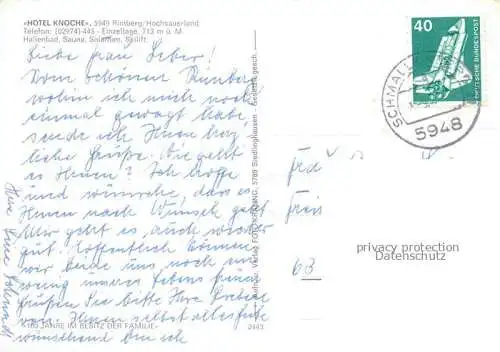 «HOTEL KNOCHE», 5949 Rimberg/Hochsauerland
Telefon: (02974)-445 - Einzellage, 713 m ü. M.
Hallenbad, Sauna, Solarium, Skilift
Liebe Frau Leber!
Vom schönen Rimberg
wohin ich mich noch
einmal gewagt habe,
sende ich Ihnen herz
liche Grüße. Wie geht
es Ihnen? Ich hoffe
und wünsche, dass es
Ihnen nach Wunsch geht
Mir geht es auch wieder
gut. Hoffentlich können
wir beide uns noch ein
wenig unseres Lebens freuen
Grüßen Sie bitte Ihre
von Ihnen selbst alles Gute
wünschend bin ich
Ihre
«100 JAHRE IM BESITZ DER FAMILIE»
2143
Verlag FOTO 5789 Siedlinghausen
gesch.
40
DEUTSCHE BUNDESPOST
SCHMALL
5948
Frei
63
privacy protection
Datenschutz